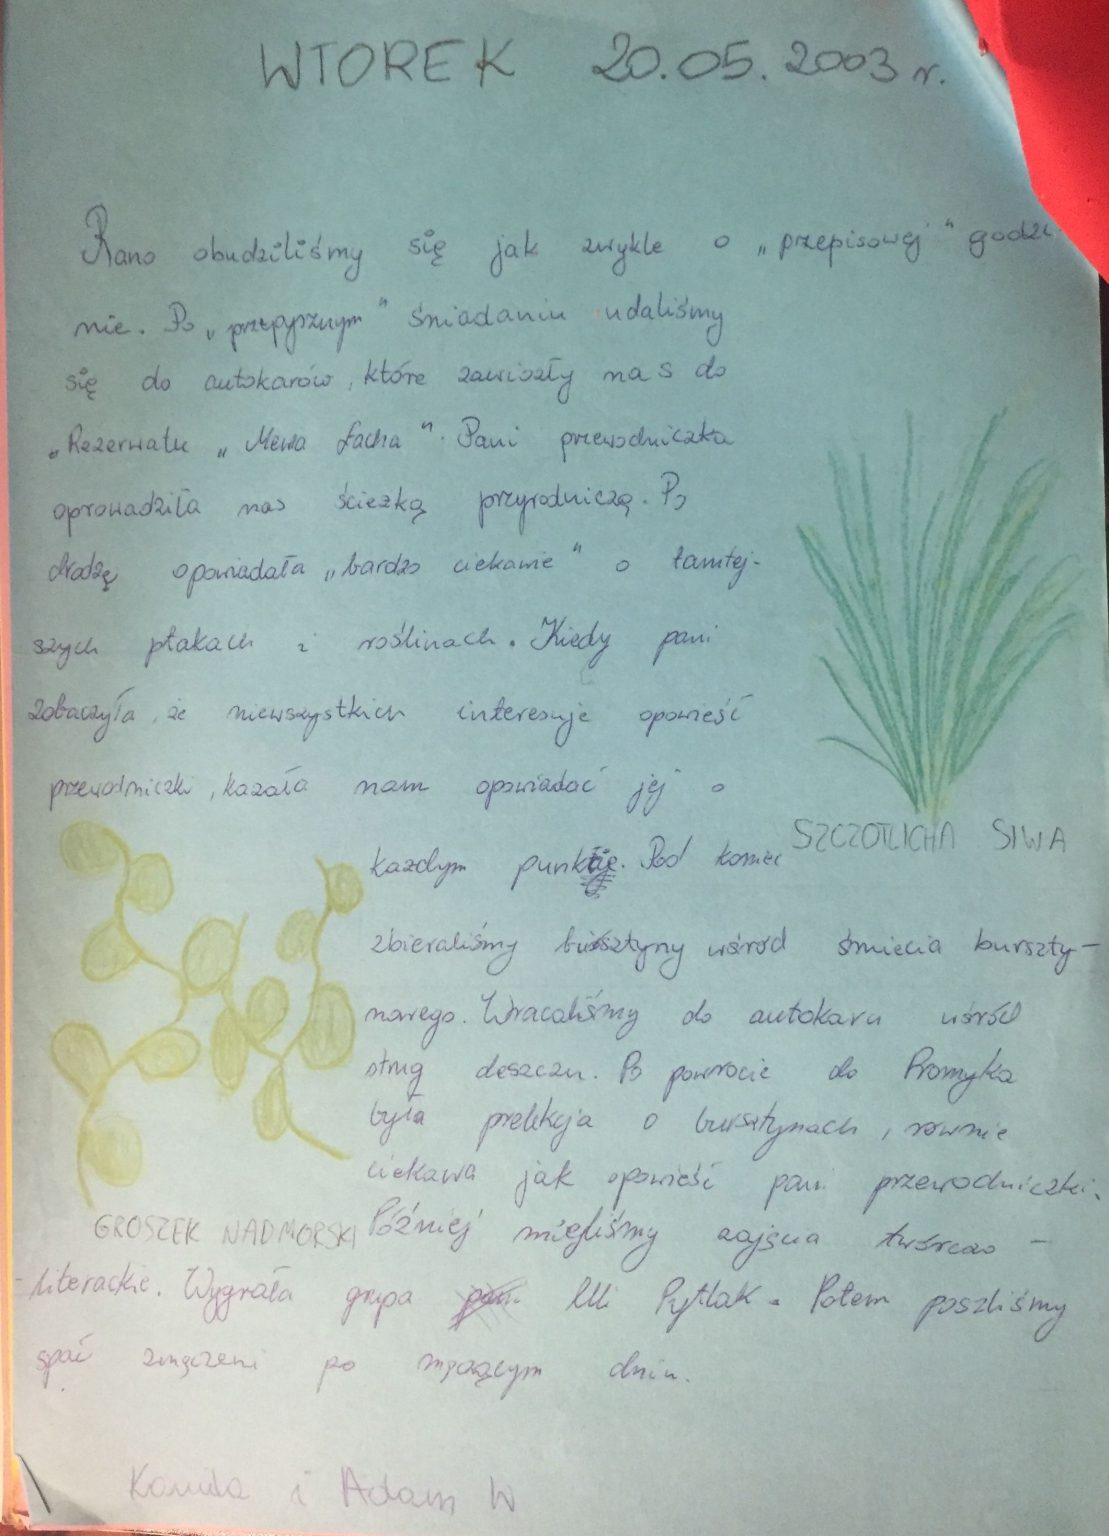 WTOREK 20.05.2003 r.
Rano obudziliśmy się jak zwykle o „przepisowej" godzi
nie. Po „przepysznym" śniadaniu udaliśmy
się do autokarów, które zawiozły nas do
„Rezerwatu „Mewa Łacha". Pani przewodniczka
oprowadziła nas ścieżką przyrodniczą. Po
drodzę opowiadała „bardzo ciekawie" o tamtej-
szych ptakach i roślinach. Kiedy pani
zobaczyła, że niewszystkich interesuje opowieść
przewodniczki, kazała nam opowiadać jej o
SZCZOTLICHA SIWA
każdym punkcie. Pod koniec
zbieraliśmy bursztyny wśród śmiecia burszty-
nowego. Wracaliśmy do autokaru wśród
strug deszczu. Po powrocie do Promyka
była prelekcja o bursztynach, równie
ciekawa jak opowieść pani przewodniczki.
GROSZEK NADMORSKI
Później mieliśmy zajęcia twórczo -
- literackie. Wygrała grupa pani Uli Pytlak. Potem poszliśmy
spać zmęczeni po męczącym dniu.
Kamila i Adam W